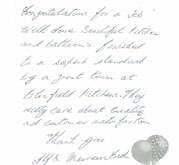 Congratulations for a Job
well done. Beautiful Kitchen
and bathrooms finished
to a superb standard
by a great team at
Kitchens. They
really care about quality
and customer satisfaction
Thank you
Mr &